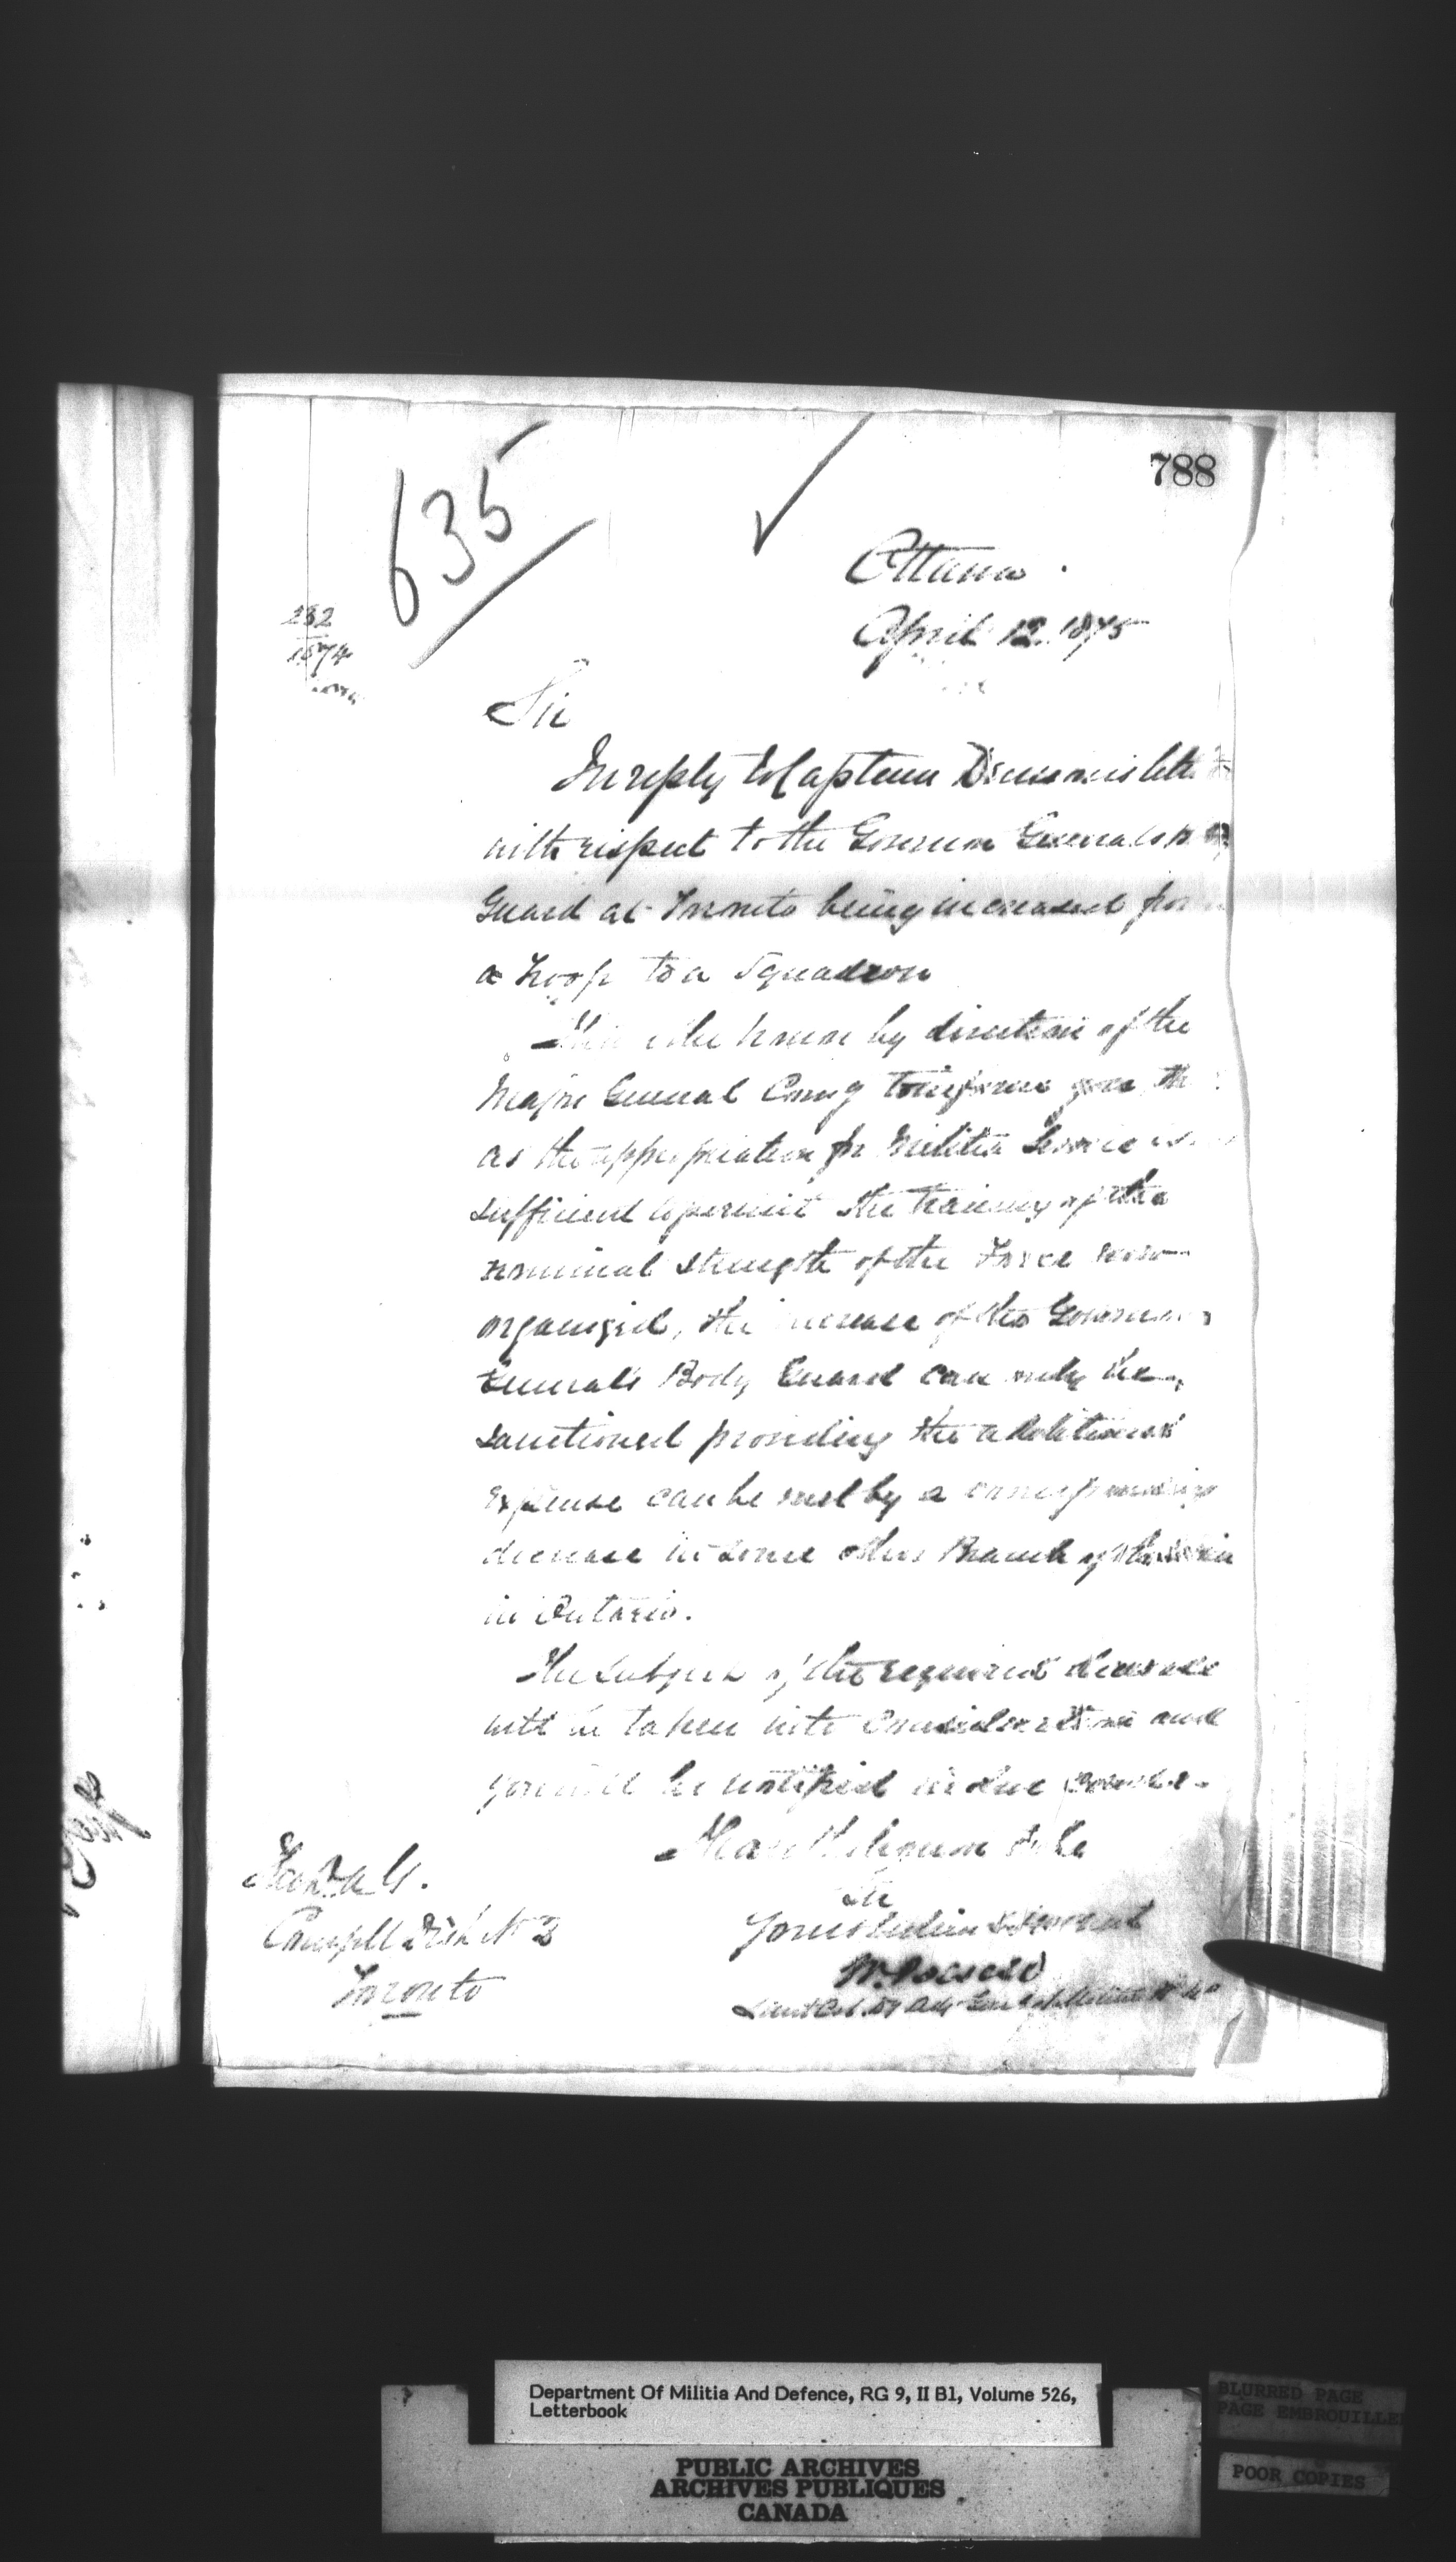 788
635
Ottawa.
April 12. 1875
232
1874
Sir
In reply to Captain Denison's letter
with respect to the Governor Generals
Guard at Toronto being increased from
a Troop to a Squadron
I have the honor by direction of the
Major General Comg to inform you that
as the appropriation for Militia Service is
sufficient to permit the training of the
nominal strength of the Force now
organized, the increase of the Governor
Generals Body Guard can only be
sanctioned providing the additional
expense can be met by a corresponding
decrease in some other Branch of the
in Ontario.
The subject of the required decrease
will be taken into consideration and
you will be notified in due course.
I have the honor to be
Sir
Your obedient Servant
W. Powell
Lieut Col. Dy Adj Genl
D.A.G.
Comg Dist No 2
Toronto
Department Of Militia And Defence, RG 9, II B1, Volume 526,
Letterbook
BLURRED PAGE
PAGE EMBROUILLEE
PUBLIC ARCHIVES
ARCHIVES PUBLIQUES
CANADA
POOR COPIES